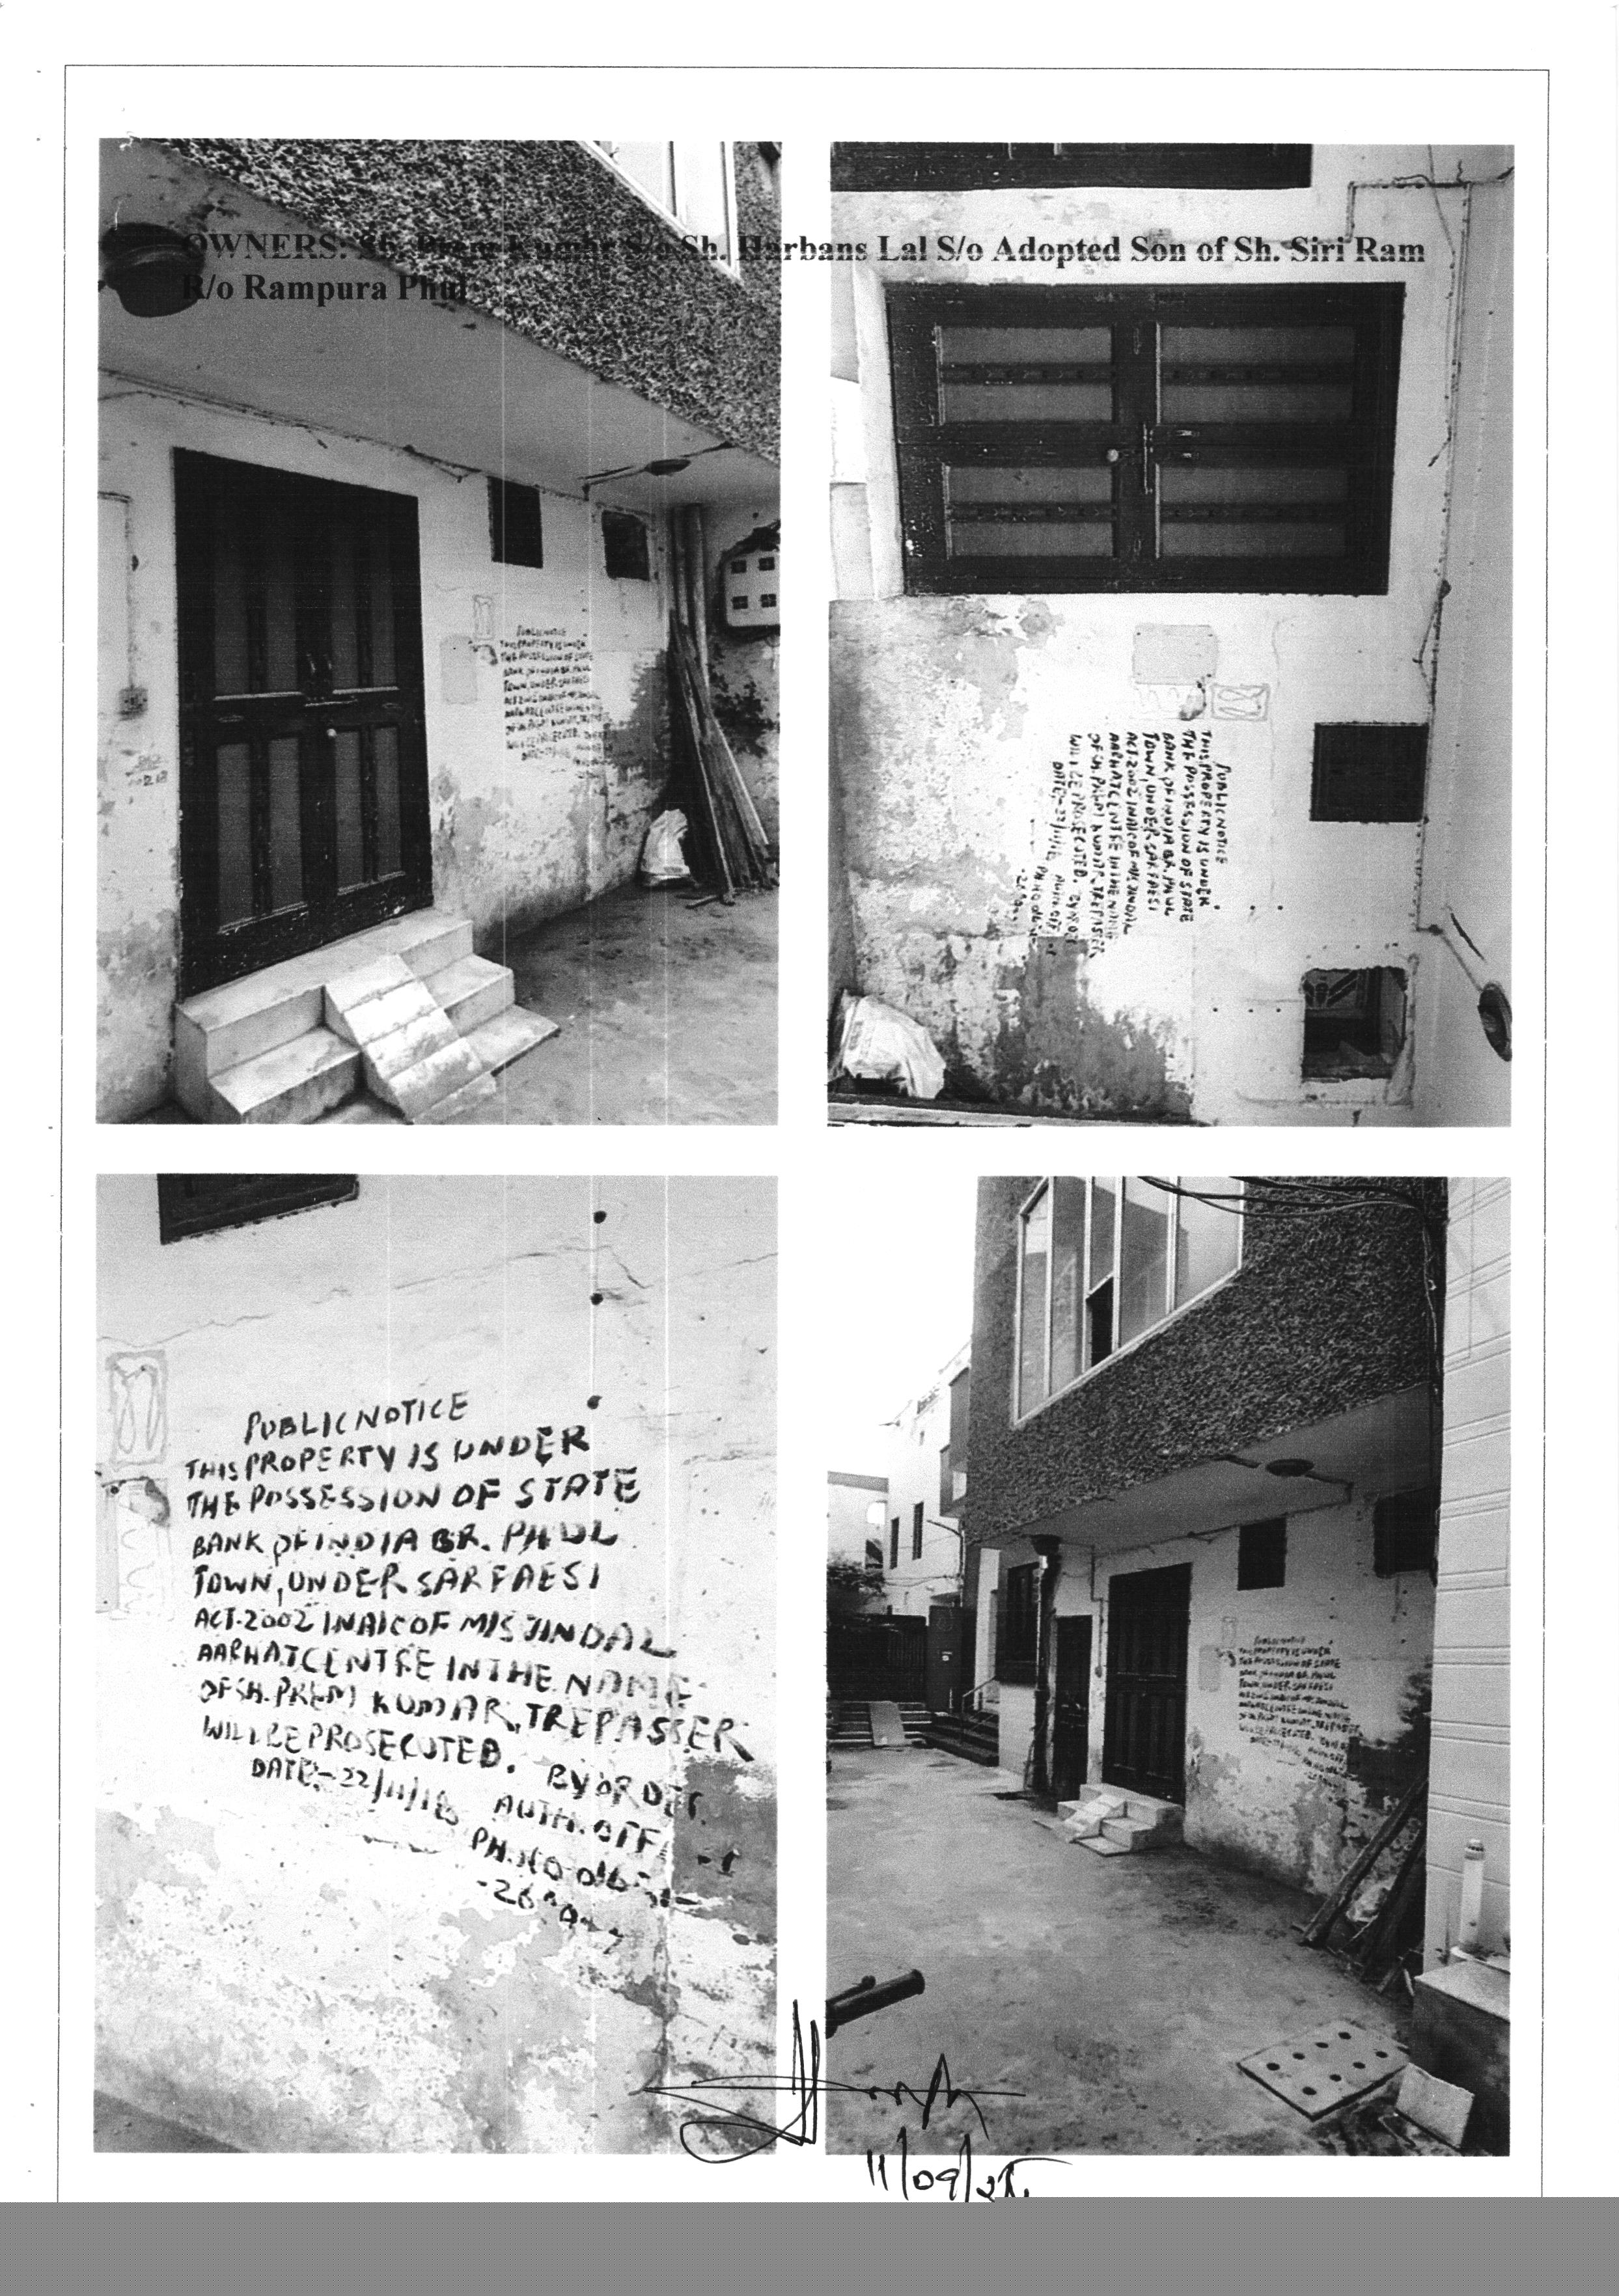 OWNERS: Sh. Prem Kumar S/o Sh. Harbans Lal S/o Adopted Son of Sh. Siri Ram
R/o Rampura Phul
PUBLIC NOTICE
THIS PROPERTY IS UNDER
THE POSSESSION OF STATE
BANK OF INDIA BR. PHUL
TOWN, UNDER SARFAESI
ACT-2002 IN A/C OF M/S JINDAL
AARHAT CENTRE IN THE NAME
OF SH. PREM KUMAR, TREPASSER
WILL BE PROSECUTED. BY ORDER
DATE:-22/11/18 AUTH. OFF
PUBLIC NOTICE
THIS PROPERTY IS UNDER
THE POSSESSION OF STATE
BANK OF INDIA BR. PHUL
TOWN, UNDER SARFAESI
ACT-2002 IN A/C OF M/S JINDAL
AARHAT CENTRE IN THE NAME
OF SH. PREM KUMAR, TREPASSER
WILL BE PROSECUTED. BY ORDER
DATE:-22/11/18 AUTH. OFF
PUBLIC NOTICE
THIS PROPERTY IS UNDER
THE POSSESSION OF STATE
BANK OF INDIA BR. PHUL
TOWN, UNDER SARFAESI
ACT-2002 IN A/C OF M/S JINDAL
AARHAT CENTRE IN THE NAME
OF SH. PREM KUMAR, TREPASSER
WILL BE PROSECUTED. BY ORDER
DATE:-22/11/18 AUTH. OFF
PH. NO
PUBLIC NOTICE
THIS PROPERTY IS UNDER
THE POSSESSION OF STATE
BANK OF INDIA BR. PHUL
TOWN, UNDER SARFAESI
11/09/25